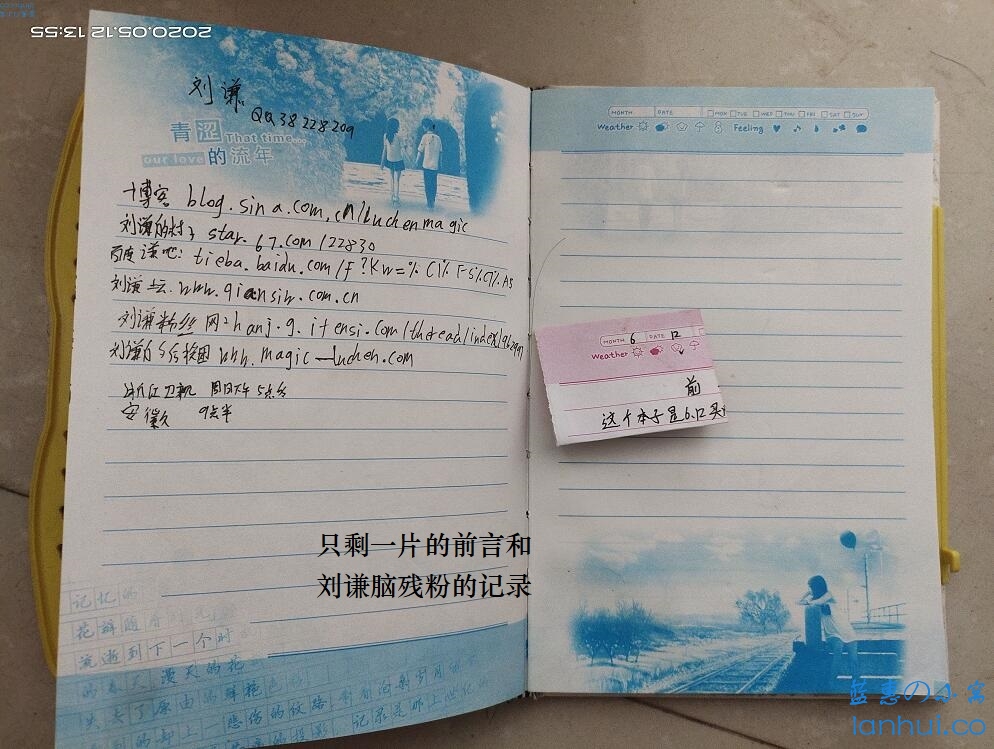 2020.05.12 13:55
刘谦
QQ3822820a
青涩
的流年
That time...
our love
博客 blog.sina.com.cn/luchenmagic
刘谦的 star.67.com/22830
百度谦吧: tieba.baidu.com/f?kw=%C1%F5%C7%AB
刘谦 www.qiansin.com.cn
刘谦粉丝网: hanj.9.itensi.com/thread/index/
刘谦的 www.magic-luchen.com
浙江卫视 周日下午5点
安徽 9点半
记忆的
花瓣随
流逝到下一个时
的春天 漫天的花
失去了原由的鲜艳色
悲伤的纹路
记录是
MONTH DATE MON TUE WED THU FRI SAT SUN
Weather Feeling
MONTH 6 DATE 12
Weather
前
这个本子是6.12买
只剩一片的前言和
刘谦脑残粉的记录
蓝惠の小窝
lanhui.co